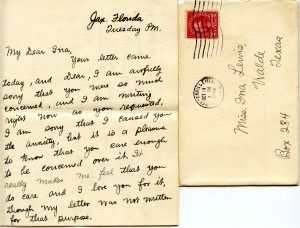 Jax. Florida
Tuesday P.M.
My Dear Ina,
Your letter came
today, and Dear, I am awfully
sorry that you were so much
concerned, and I am writing
right now as you requested,
I am sorry that I caused you
the anxiety, but it is a pleasure
to know that you care enough
to be concerned over it. It
really makes me feel that you
do care and I love you for it,
though my letter was not written
for that purpose.
Miss Ina Lewis,
Uvalde
Texas
Box 284